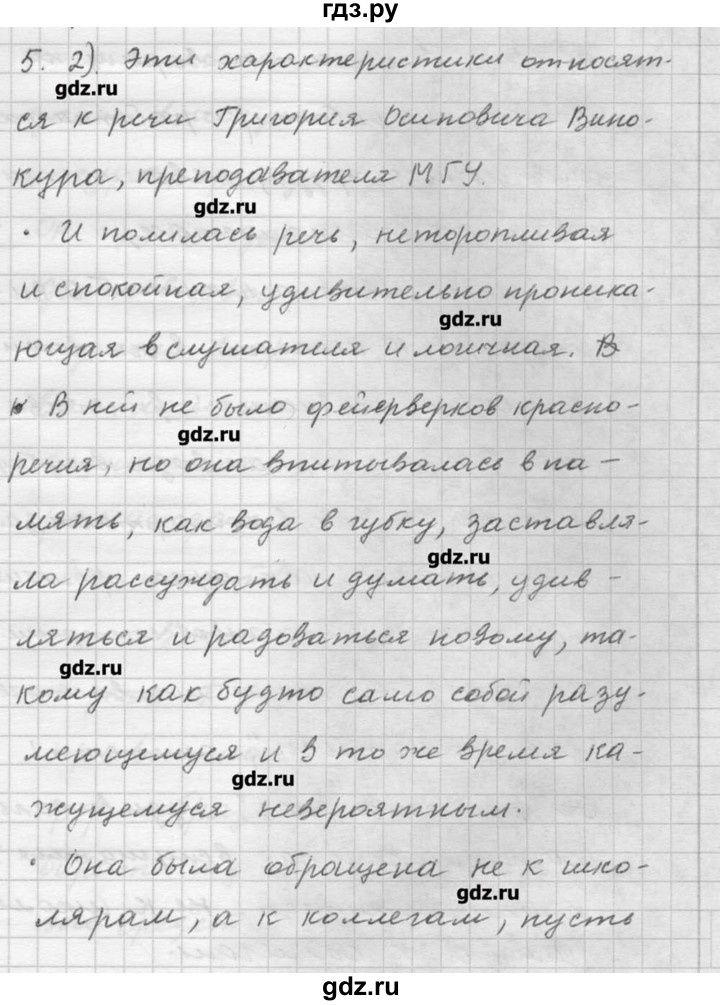 гдз.ру
5. 2). Эти характеристики относят-
gdz.ru
ся к речи Григория Осиповича Вино-
кура, преподавателя МГУ.
gdz.ru
• И полилась речь, неторопливая
и спокойная, удивительно проника-
gdz.ru
ющая в слушателя и логичная. В
• В ней не было фейерверков красно-
gdz.ru
речия, но она впитывалась в па-
мять, как вода в губку, заставля-
gdz.ru
ла рассуждать и думать, удив-
ляться и радоваться новому, та-
gdz.ru
кому как будто само собой разу-
меющемуся и в то же время ка-
gdz.ru
жущемуся невероятным.
• Она была обращена не к шко-
gdz.ru
лярам, а к коллегам, пусть
gdz.ru